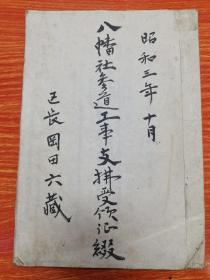 昭和三年十月
八幡社参道工事支拂受領証綴
区長岡田六藏